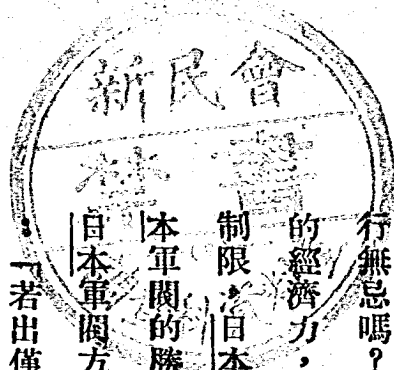 新民會
禁書
行無忌嗎？
的經濟力，
制限，日本
本軍閥的勝
日本軍閥方
：「若出僅